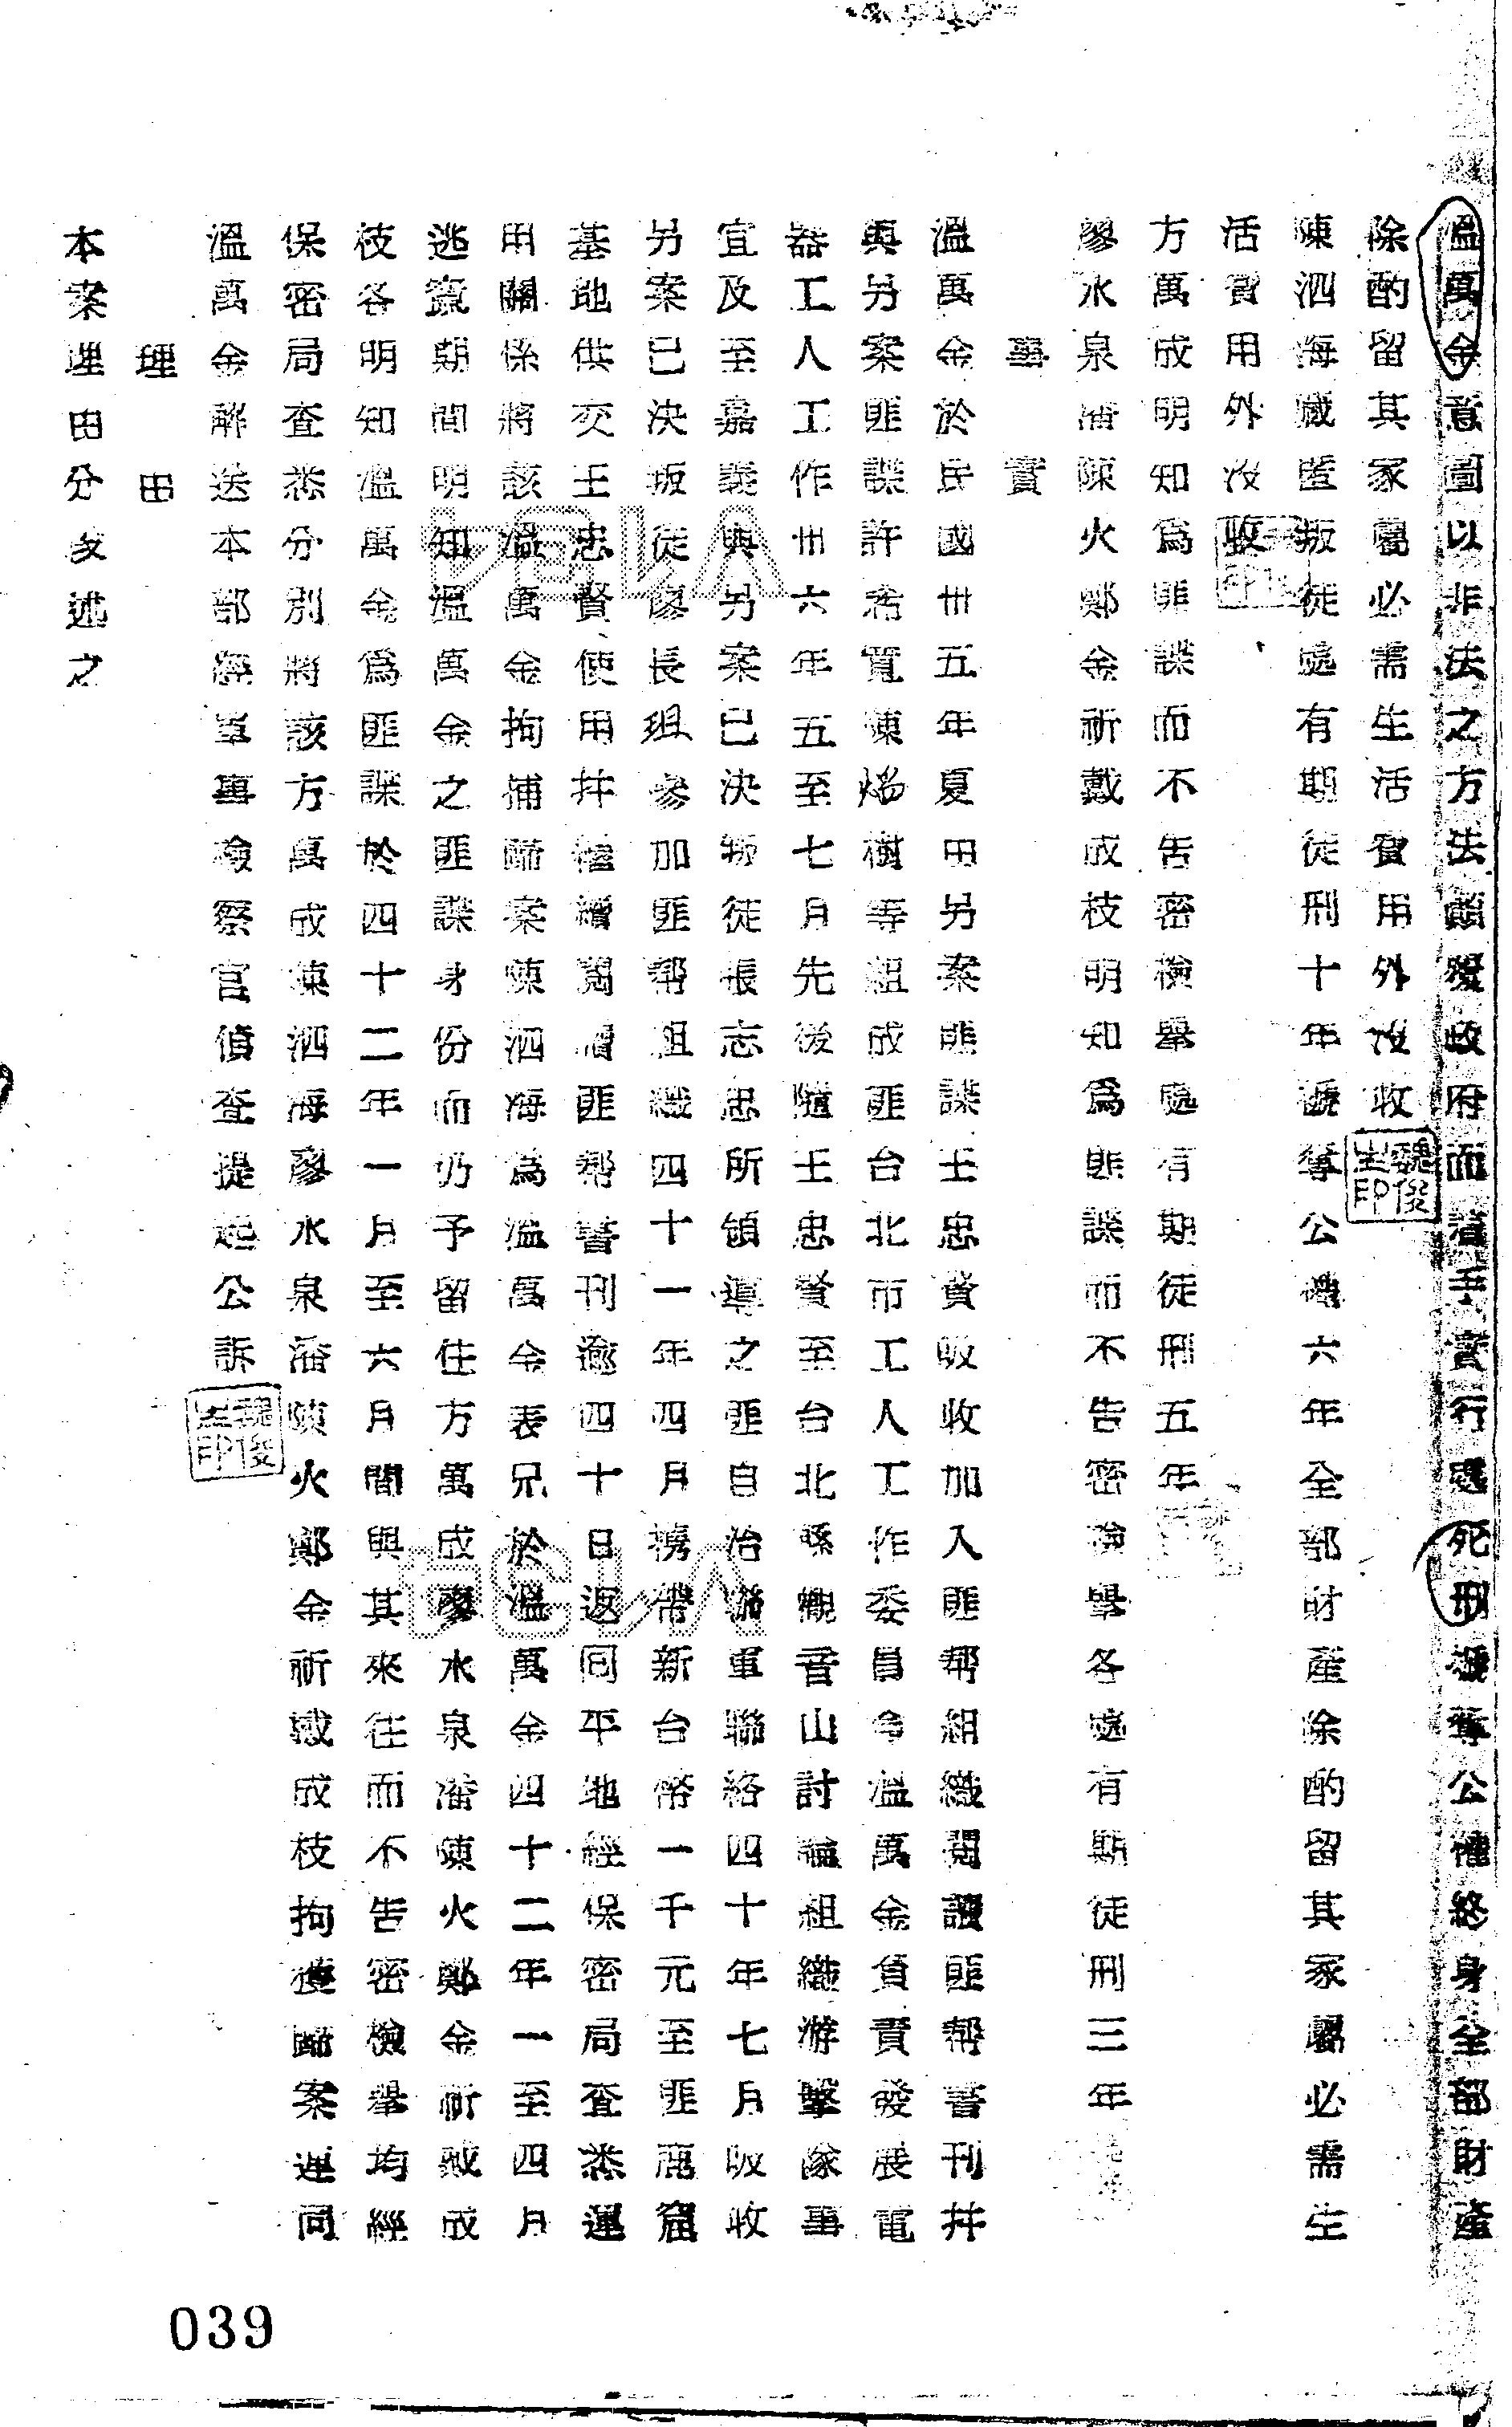 溫萬金意圖以非法之方法顛覆政府而着手實行處死刑褫奪公權終身全部財產
除酌留其家屬必需生活費用外沒收
陳泗海藏匿叛徒處有期徒刑十年褫奪公權六年全部財產除酌留其家屬必需生
活費用外沒收
方萬成明知為匪諜而不告密檢舉處有期徒刑五年
廖水泉潘陳火鄭金祈戴成枝明知為匪諜而不告密檢舉各處有期徒刑三年
事實
溫萬金於民國卅五年夏由另案匪諜王忠賢吸收加入匪幫組織閱讀匪幫書刊并
與另案匪諜許希寬陳焰樹等組成匪台北市工人工作委員令溫萬金負責發展電
器工人工作卅六年五至七月先後隨王忠賢至台北縣觀音山討論組織游擊隊事
宜及至嘉義與另案已決叛徒張志忠所領導之匪自治聯軍聯絡四十年七月吸收
另案已決叛徒廖長班參加匪幫組織四十一年四月携帶新台幣一千元至匪鹿窟
基地供交王忠賢使用并繼續閱讀匪幫書刊逾四十日返回平地經保密局查悉運
用關係將該溫萬金拘捕歸案陳泗海為溫萬金表兄於溫萬金四十二年一至四月
逃竄期間明知溫萬金之匪諜身份而仍予留住方萬成廖水泉潘陳火鄭金祈戴成
枝各明知溫萬金為匪諜於四十二年一月至六月間與其來往而不告密檢舉均經
保密局查悉分別將該方萬成陳泗海廖水泉潘陳火鄭金祈戴成枝拘獲歸案連同
溫萬金解送本部經軍事檢察官偵查提起公訴
理由
本案理由分敘述之
魏俊生印
魏俊生印
039